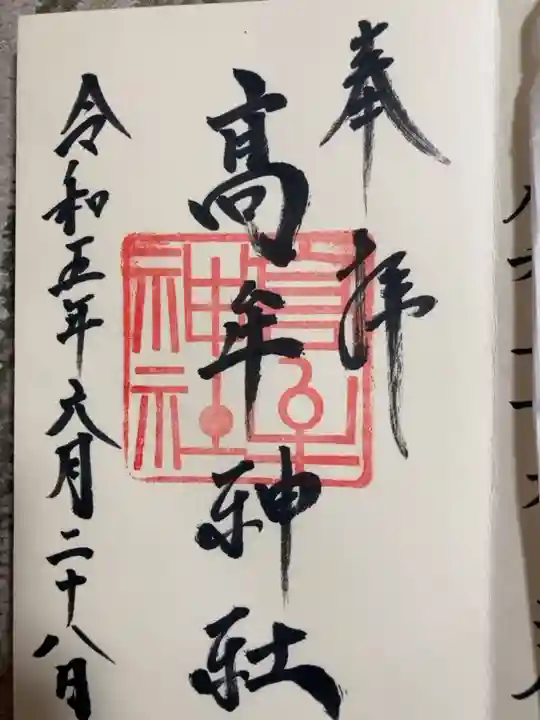 奉拝
高牟神社
令和五年六月二十八日
高牟
神社